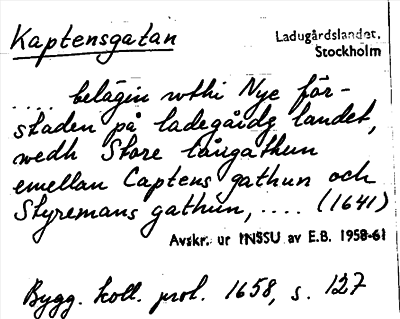 Kaptensgatan
Ladugårdslandet.
Stockholm
.... belägin wthi Nye för-
staden på ladegårdz landet,
wedh Store långathun
emellan Captens gathun och
Styremans gathun, .... (1641)
Avskr. ur INSSU av E.B. 1958-61
Bygg. koll. prot. 1658, s. 127